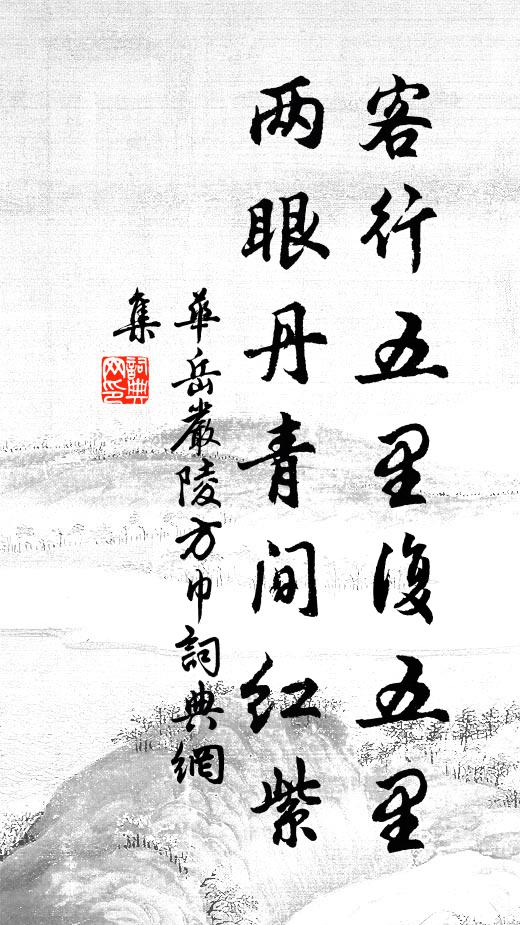 客行五里復五里
两眼丹青间红紫
華岳嚴陵方巾詞典網
集
詞典網印